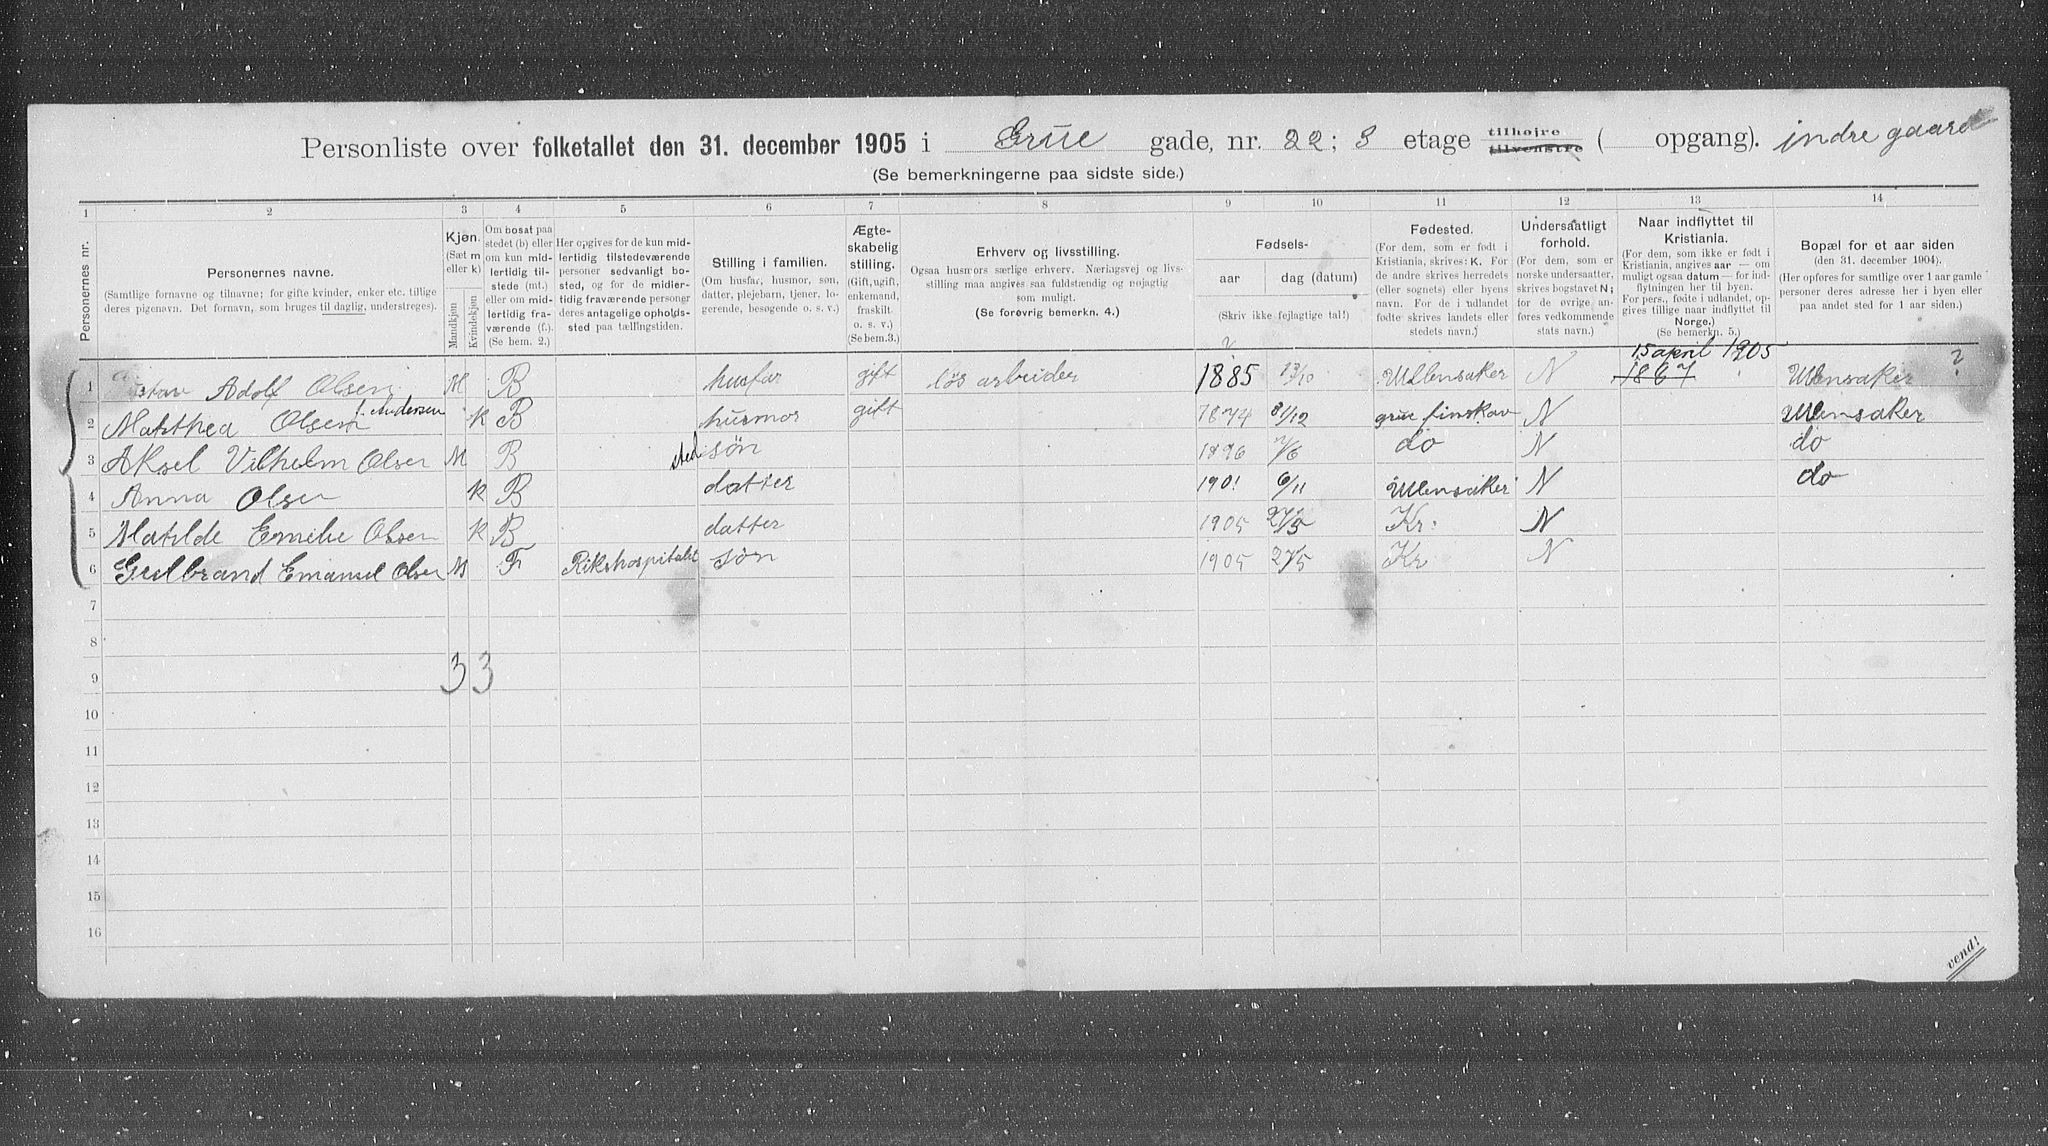 Personliste over folketallet den 31. december 1905 i Grüe gade, nr. 22; 3 etage tilhøjre tilvenstre ( opgang). indre gaard
(Se bemerkningerne paa sidste side.)
1 2 3 4 5 6 7 8 9 10 11 12 13 14
Personernes nr.
Personernes navne.
(Samtlige fornavne og tilnavne; for gifte kvinder, enker etc. tillige
deres pigenavn. Det fornavn, som bruges til daglig, understreges).
Kjøn.
(Sæt m
eller k)
Mandkjøn
Kvindekjøn
Om bosat paa
stedet (b) eller
om kun mid-
lertidig til-
stede (mt.)
eller om mid-
lertidig fra-
værende (f.).
(Se bem. 2.)
Her opgives for de kun mid-
lertidig tilstedeværende
personer sedvanligt bo-
sted, og for de midler-
tidig fraværende personer
deres antagelige opholds-
sted paa tællingstiden.
Stilling i familien.
(Om husfar, husmor, søn,
datter, plejebarn, tjener, lo-
gerende, besøgende o. s. v.)
Ægte-
skabelig
stilling.
(Gift, ugift,
enkemand,
fraskilt
o. s. v.)
(Se bem. 3.)
Erhverv og livsstilling.
Ogsaa husmors særlige erhverv. Næringsvej og livs-
stilling maa angives saa fuldstændig og nøjagtig
som muligt.
(Se forøvrig bemerkn. 4.)
Fødsels-
aar
dag (datum)
(Skriv ikke fejlagtige tal!)
Fødested.
(For dem, som er født i
Kristiania, skrives: K. For
de andre skrives herredets
(eller sognets) eller byens
navn. For de i udlandet
fødte skrives landets eller
stedets navn.)
Undersaatligt
forhold.
(For dem, som er
norske undersaatter,
skrives bogstavet N;
for de øvrige an-
føres vedkommende
stats navn.)
Naar indflyttet til
Kristiania.
(For dem, som ikke er født i
Kristiania, angives aar — om
muligt ogsaa datum — for ind-
flytningen her til byen.
For pers., fødte i udlandet, op-
gives tillige naar indflyttet til
Norge.)
(Se bemerkn. 5.)
Bopæl for et aar siden
(den 31. december 1904).
(Her opføres for samtlige over 1 aar gamle
personer deres adresse her i byen eller
paa andet sted for 1 aar siden.)
15 april 1905
1 Adolf Olsen M B husfar gift løs arbeider 1885 13/10 Ullensaker N 1867 Ullensaker ?
2 Matthea Olsen f. Andersen k B husmor gift 1874 31/12 grue finskov N Ullensaker
3 Aksel Vilhelm Olsen M B sted søn 1896 7/6 do N do
4 Anna Olsen k B datter 1901 6/11 Ullensaker N do
5 Matilde Emilie Olsen k B datter 1905 27/5 Kr: N
6 Gulbrand Emanuel Olsen M F Rikshospitalet søn 1905 27/5 Kr N
7
8
9 3 3
10
11
12
13
14
15
16
vend!